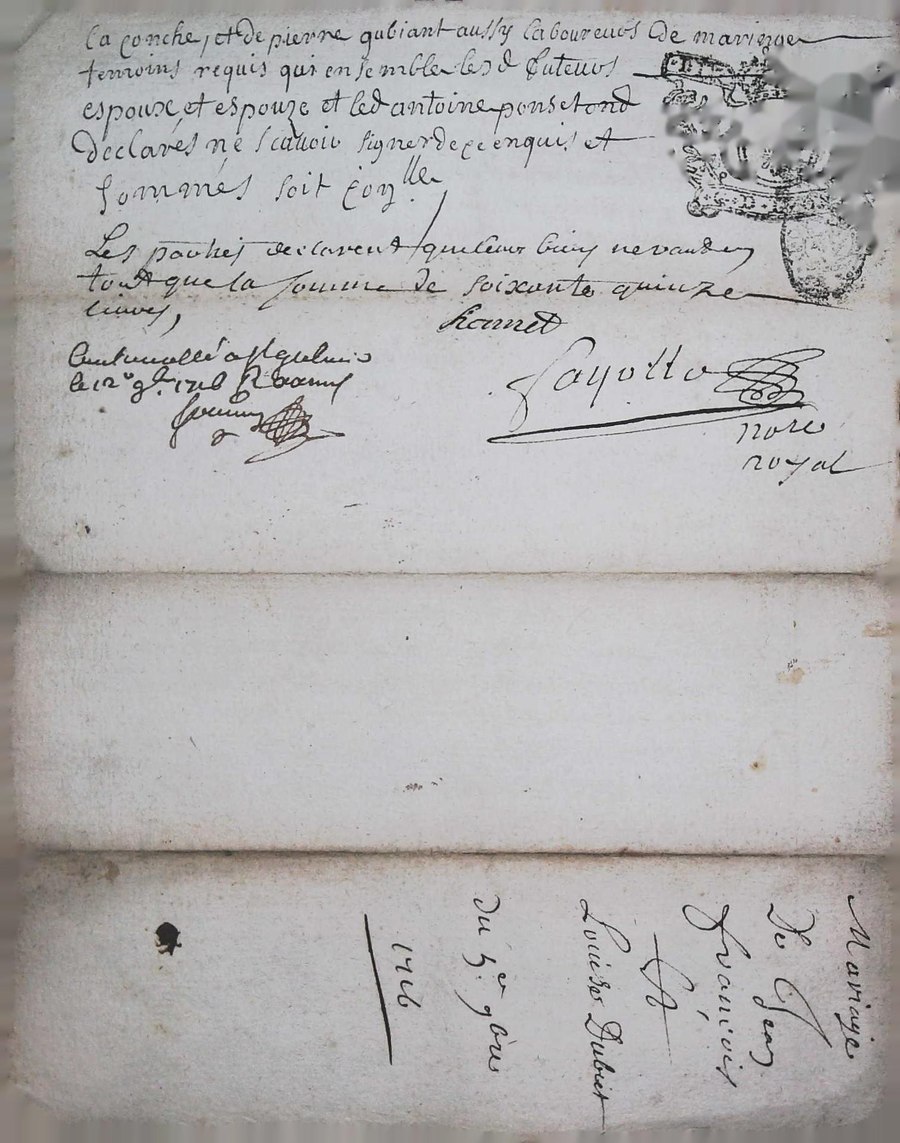 la conche, et de pierre gubiant aussy laboureurs de maringe
temoins requis qui ensemble lesd futeurs
espoux et espouze et led antoine ponsetond
declarés ne scavoir signer de ce enquis et
sommés soit
Les parties declarent que leurs biens ne vandes
tout que la somme de soixante quinze
livres,
le 12e 9b. 1716
Fayolle
nore
royal
Mariage
De Jean
françois
Et
Louise Dubiet
du 5e 9bre
1716